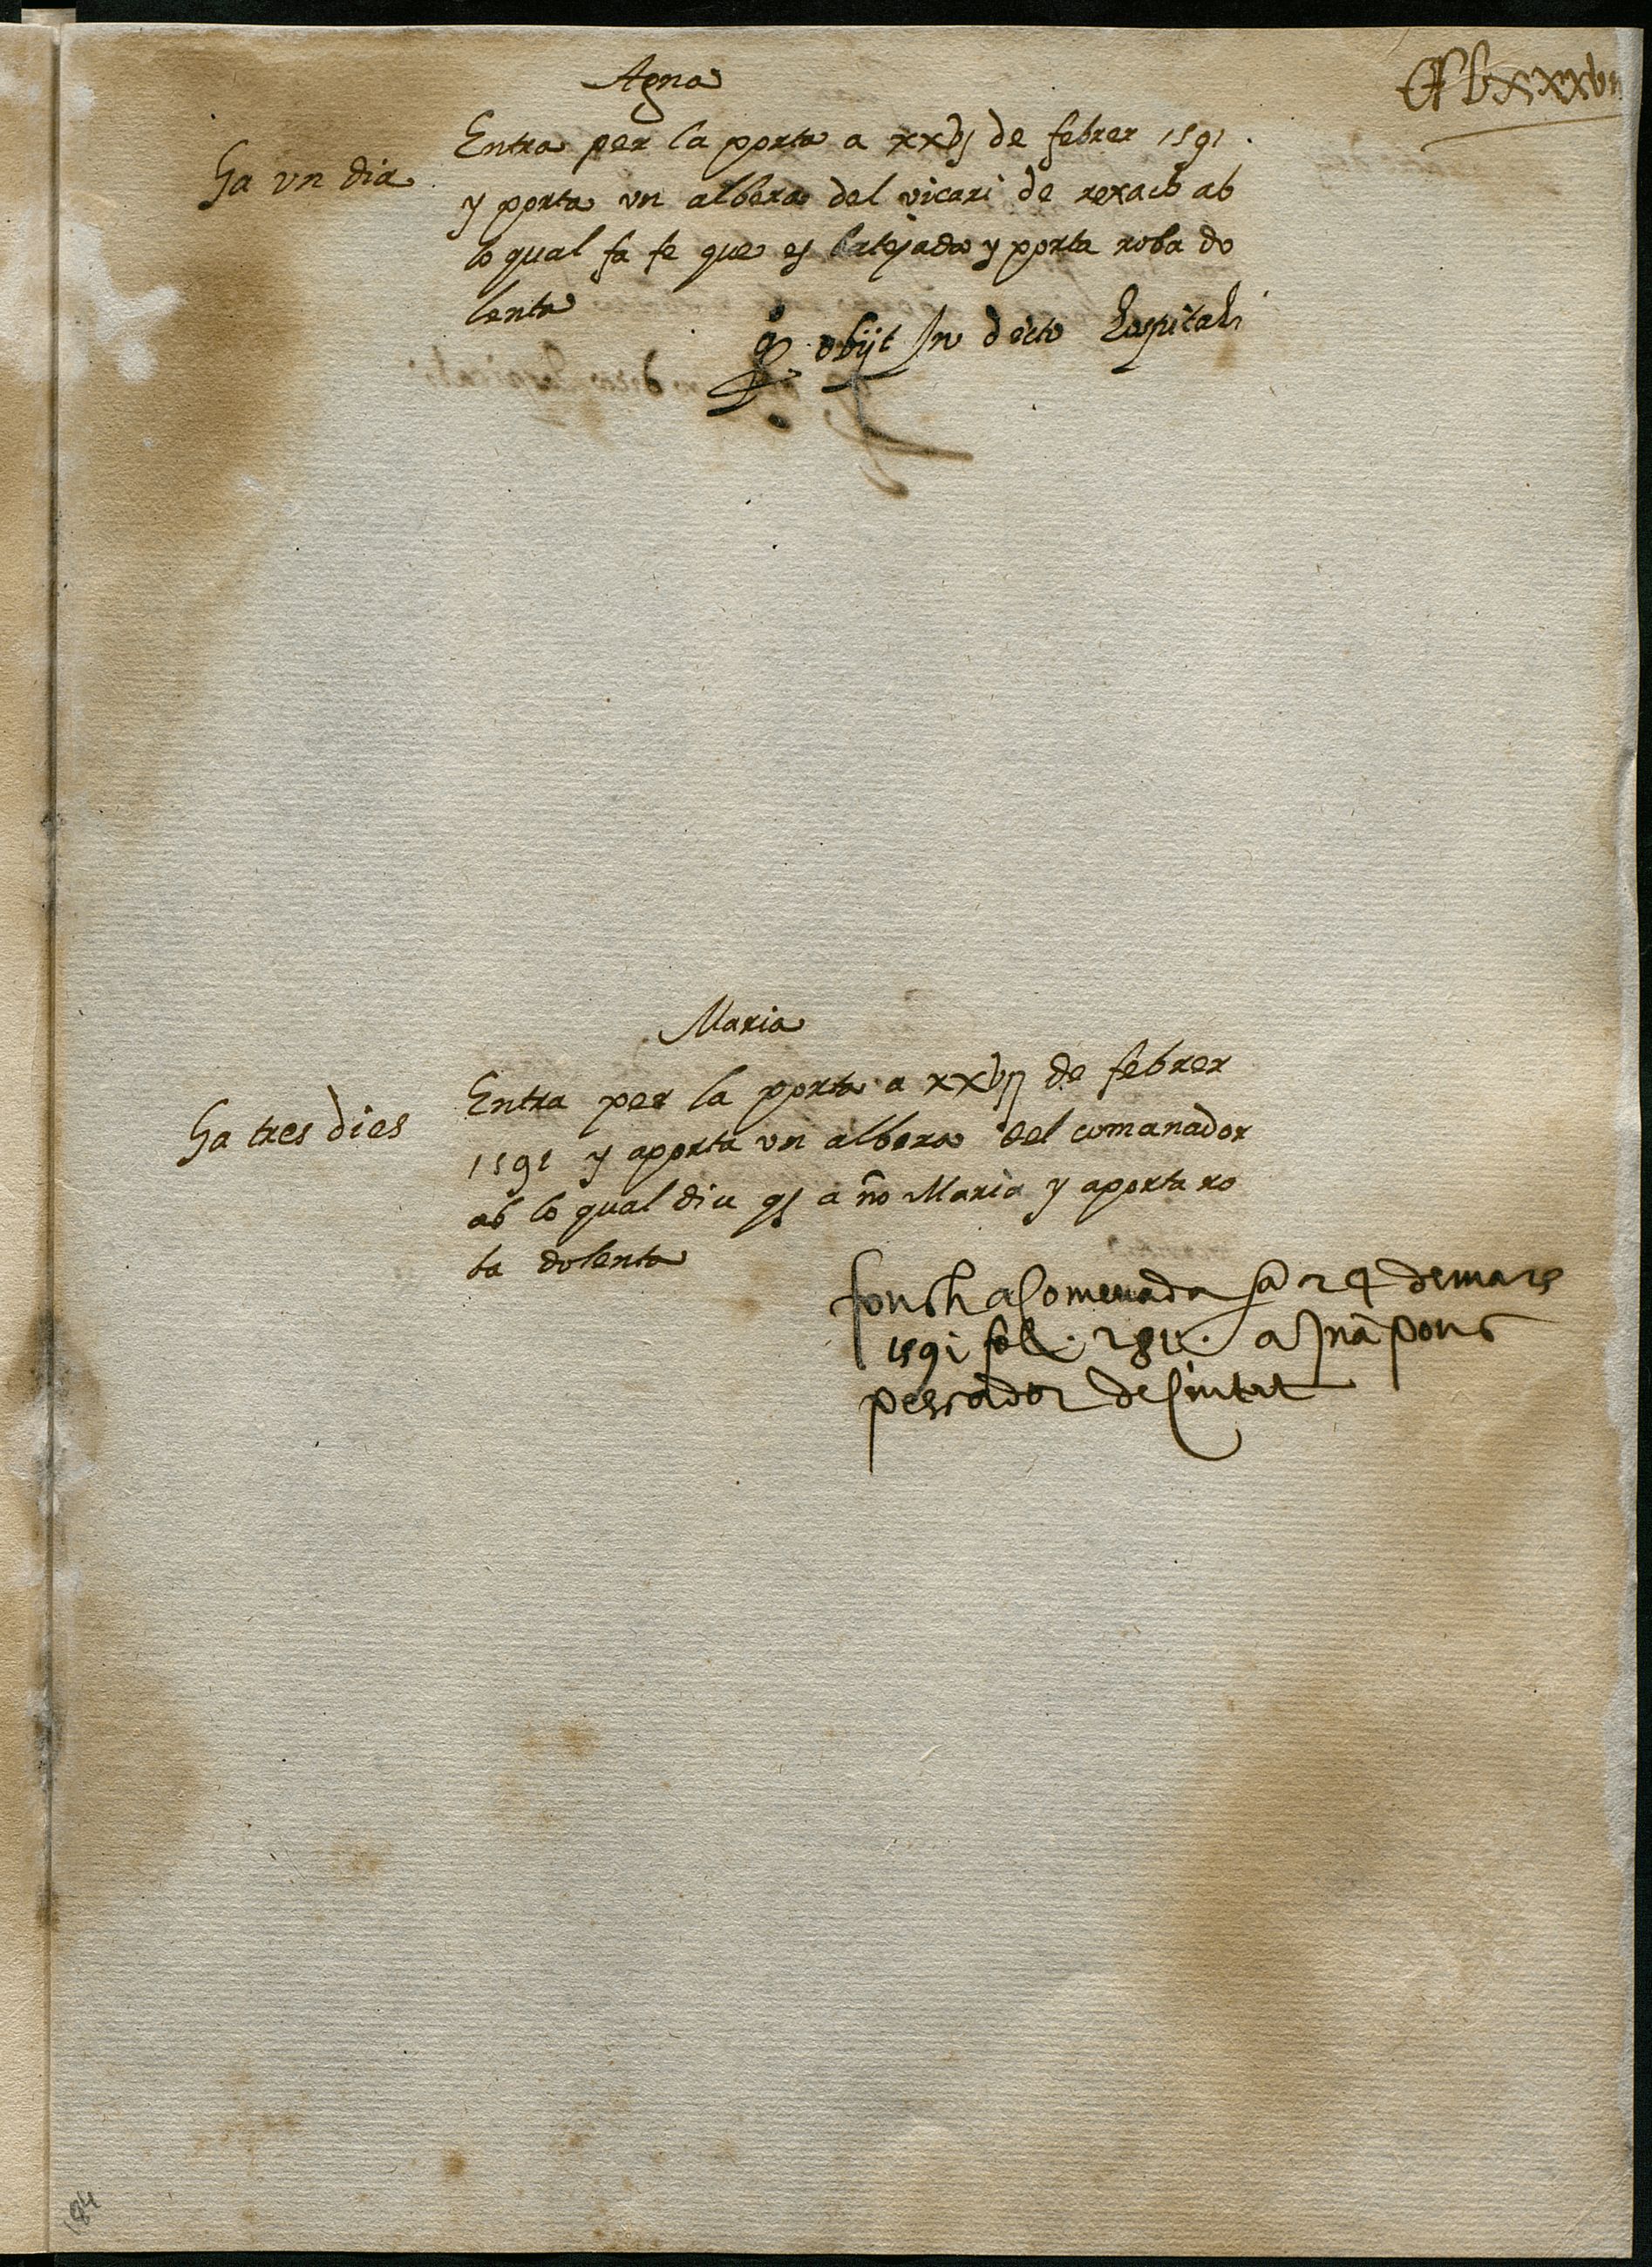 Agna
Ha vn dia
Entra per la porta a xxvj de febrer 1591.
y porta vn albera del vicari de rexach ab
lo qual fa fe que es batejada y porta roba do
lenta
obijt In dicto hospitali
Maria
Ha tres dies
Entra per la porta a xxvij de febrer
1591 y aporta vn albera del comanador
ab lo qual diu año Maria y aporta ro
ba dolenta
fonch acomenada a 24 de mars
1591 fol. a pons
pescador de Ciutat
184